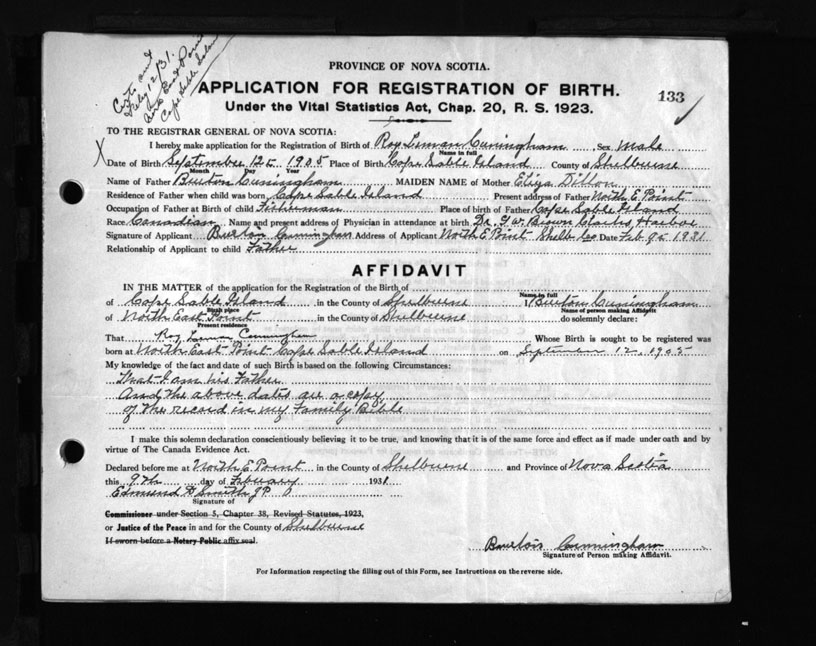 Certs and
Feby 12/31.
Cape Sable Island
PROVINCE OF NOVA SCOTIA.
APPLICATION FOR REGISTRATION OF BIRTH.
133
Under the Vital Statistics Act, Chap. 20, R. S. 1923.
TO THE REGISTRAR GENERAL OF NOVA SCOTIA:
I hereby make application for the Registration of Birth of Roy Liman Cuningham Sex Male
Name in full
X Date of Birth September 12th 1905 Place of Birth Cape Sable Island County of Shelburne
Month Day Year
Name of Father Burton Cuningham MAIDEN NAME of Mother Eliza Dillon
Residence of Father when child was born Cape Sable Island Present address of Father North E Point
Occupation of Father at Birth of child Fisherman Place of birth of Father Cape Sable Island
Race Canadian Name and present address of Physician in attendance at birth Dr. I W. Brown Clarks Harbor
Signature of Applicant Burton Cunningham Address of Applicant North E Point Shelb Co Date Feb 9th 1931
Relationship of Applicant to child Father
AFFIDAVIT
IN THE MATTER of the application for the Registration of the Birth of
Name in full
of Cape Sable Island in the County of Shelburne I Burton Cuningham
Birth place Name of person making Affidavit
of North East Point in the County of Shelburne do solemnly declare:
Present residence
That Roy Liman Cunningham Whose Birth is sought to be registered was
born at North East Point Cape Sable Island on September 12, 1905
My knowledge of the fact and date of such Birth is based on the following Circumstances:
That I am his Father
And the above dates are a copy
of the record in my Family Bible
I make this solemn declaration conscientiously believing it to be true, and knowing that it is of the same force and effect as if made under oath and by
virtue of The Canada Evidence Act.
Declared before me at North E Point in the County of Shelburne and Province of Nova Scotia
this 9th day of February 1931
Edmund D Smith JP
Signature of
Commissioner under Section 5, Chapter 38, Revised Statutes, 1923,
or Justice of the Peace in and for the County of Shelburne
If sworn before a Notary Public affix seal.
Burton Cunningham
Signature of Person making Affidavit.
For Information respecting the filling out of this Form, see Instructions on the reverse side.